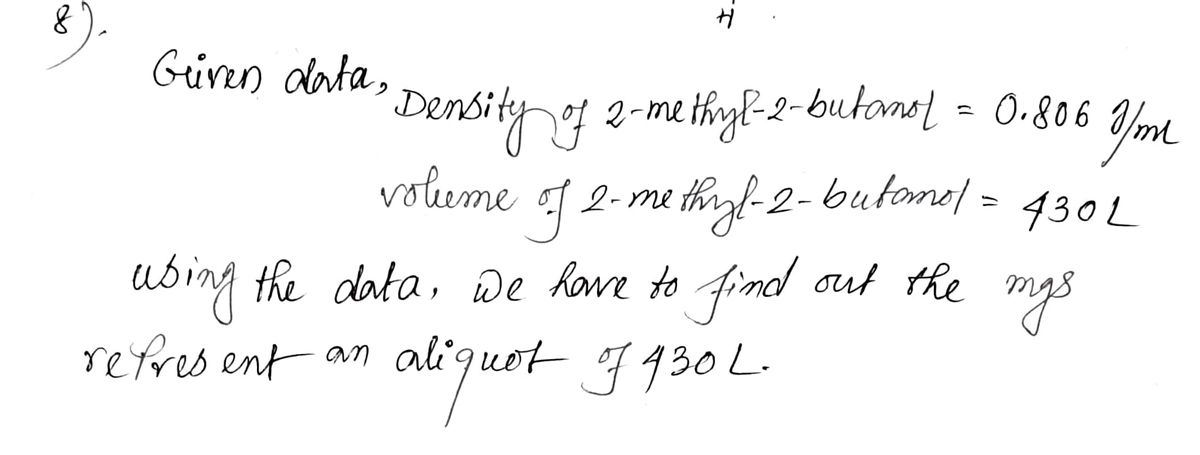 8).
H
Given data,
Density of 2-methyl-2-butanol = 0.806 g/ml
volume of 2-methyl-2-butanol = 430 L
using the data, we have to find out the mgs
represent an aliquot of 430 L.